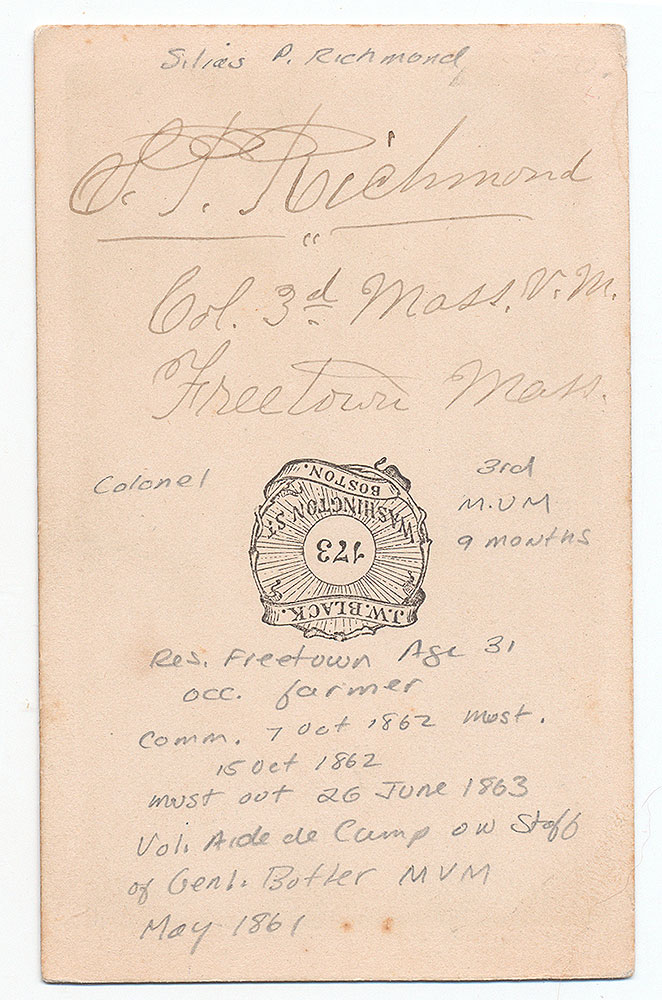 Silias P. Richmond
S. P. Richmond
"
Col. 3d Mass. V. M.
Freetown Mass.
Colonel
3rd
M.V.M
9 months
J.W. BLACK.
173
WASHINGTON ST.
BOSTON.
Res. Freetown Age 31
occ. farmer
Comm. 7 Oct 1862 must.
15 Oct 1862
must out 26 June 1863
Vol. Aide de Camp on Staff
of Genl. Botler MVM
May 1861